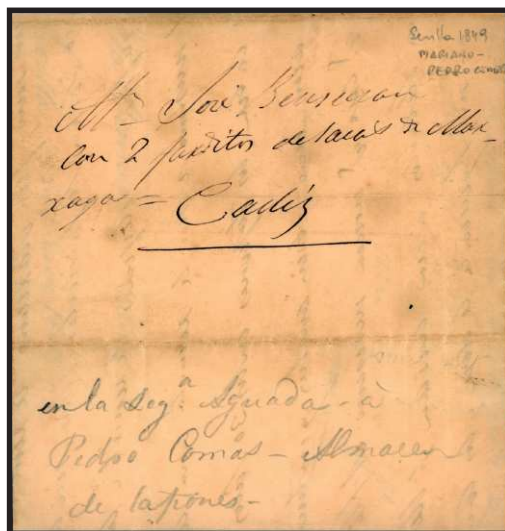 Sevilla 1849
MARIANO -
PEDRO COMAS
Mr José
con 2 farditos de sacas de Mar-
raga = Cadiz
en la Seg.ª Aguada - à
Pedro Comas - Almacen
de tapones -